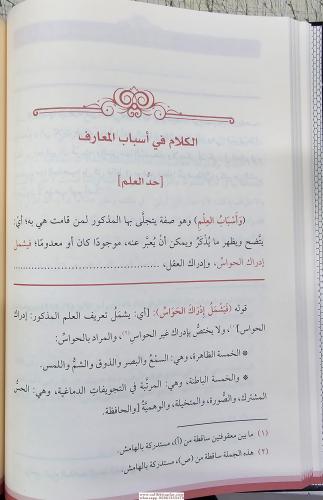 الكلام في أسباب المعارف
[حدُّ العلم]
(وَأَسْبَابُ العِلْمِ) وهو صفة يتجلَّى بها المذكور لمن قامت هي به؛ أيْ:
يتَّضح ويظهر ما يُذْكَرُ ويمكن أنْ يُعبَّر عنه، موجودًا كان أو معدومًا؛ فيشمل
إدراك الحواس، وإدراك العقل،
قوله (فَيَشْمَلُ إِدْرَاكَ الحَوَاسِّ): [أي: يشملُ تعريف العلم المذكور: إدراك
الحواس](١)، ولا يختصُّ بإدراك غير الحواس(٢)، والمراد بالحواسِّ:
* الخمسة الظاهرة، وهي: السمْعُ والبصر والذوق والشمُّ واللمس.
* والخمسة الباطنة، وهي: المرتَّبة في التجويفات الدماغية، وهي: الحسُّ
المشترك، والصُّورة، والمتخيلة، والوهميَّة [والحافظة.
(١) ما بين معقوفتين ساقطة من (أ)، مستدركة بالهامش.
(٢) هذه الجملة ساقطة من (ص)، مستدركة بالهامش.